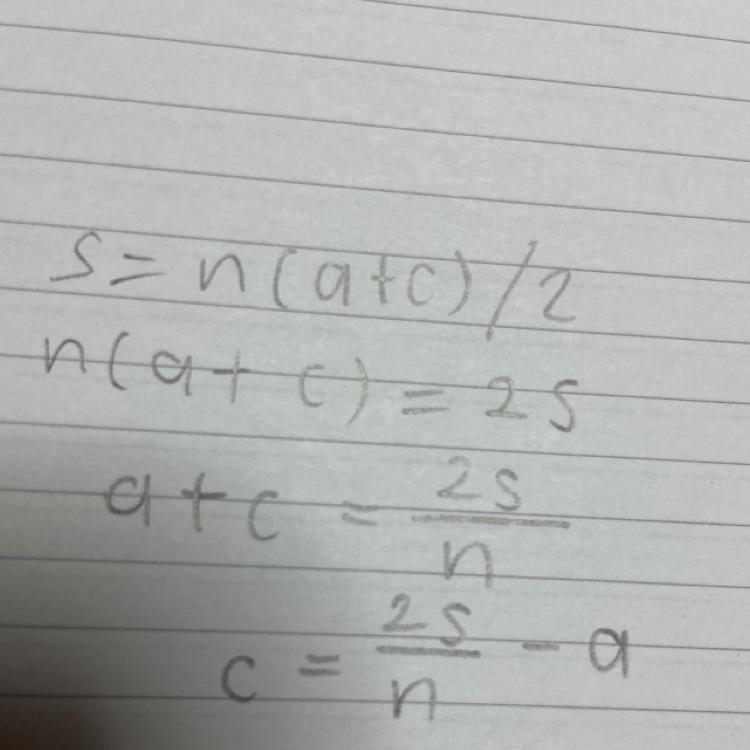 S = n(a+c)/2
n(a+c) = 2S
a+c = 2S/n
c = 2S/n - a